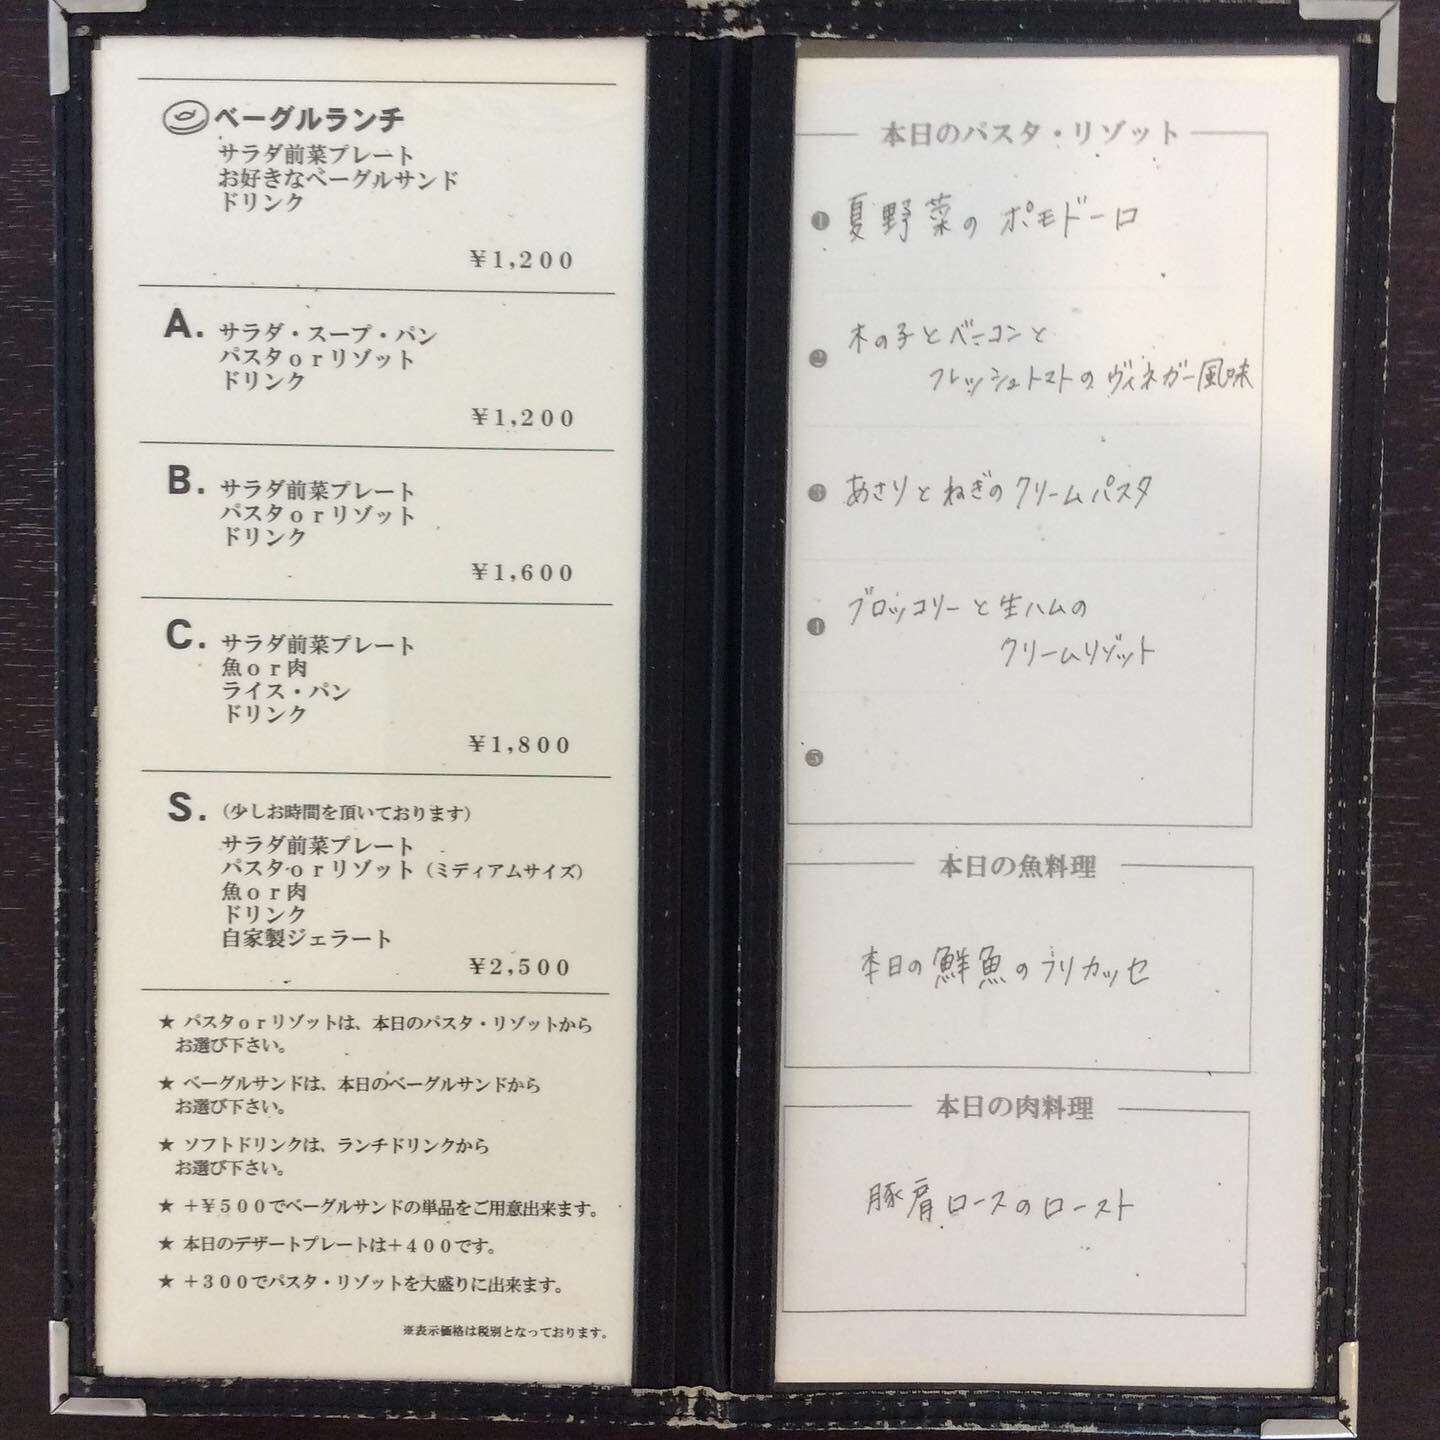 ベーグルランチ
サラダ前菜プレート
お好きなベーグルサンド
ドリンク
¥1,200
A. サラダ・スープ・パン
パスタorリゾット
ドリンク
¥1,200
B. サラダ前菜プレート
パスタorリゾット
ドリンク
¥1,600
C. サラダ前菜プレート
魚or肉
ライス・パン
ドリンク
¥1,800
S. (少しお時間を頂いております)
サラダ前菜プレート
パスタorリゾット(ミディアムサイズ)
魚or肉
ドリンク
自家製ジェラート
¥2,500
★ パスタorリゾットは、本日のパスタ・リゾットから
お選び下さい。
★ ベーグルサンドは、本日のベーグルサンドから
お選び下さい。
★ ソフトドリンクは、ランチドリンクから
お選び下さい。
★ +¥500でベーグルサンドの単品をご用意出来ます。
★ 本日のデザートプレートは+400です。
★ +300でパスタ・リゾットを大盛りに出来ます。
※表示価格は税別となっております。
本日のパスタ・リゾット
❶ 夏野菜のポモドーロ
❷ 木の子とベーコンと
フレッシュトマトのヴィネガー風味
❸ あさりとねぎのクリームパスタ
❹ ブロッコリーと生ハムの
クリームリゾット
❺
本日の魚料理
本日の鮮魚のフリカッセ
本日の肉料理
豚肩ロースのロースト